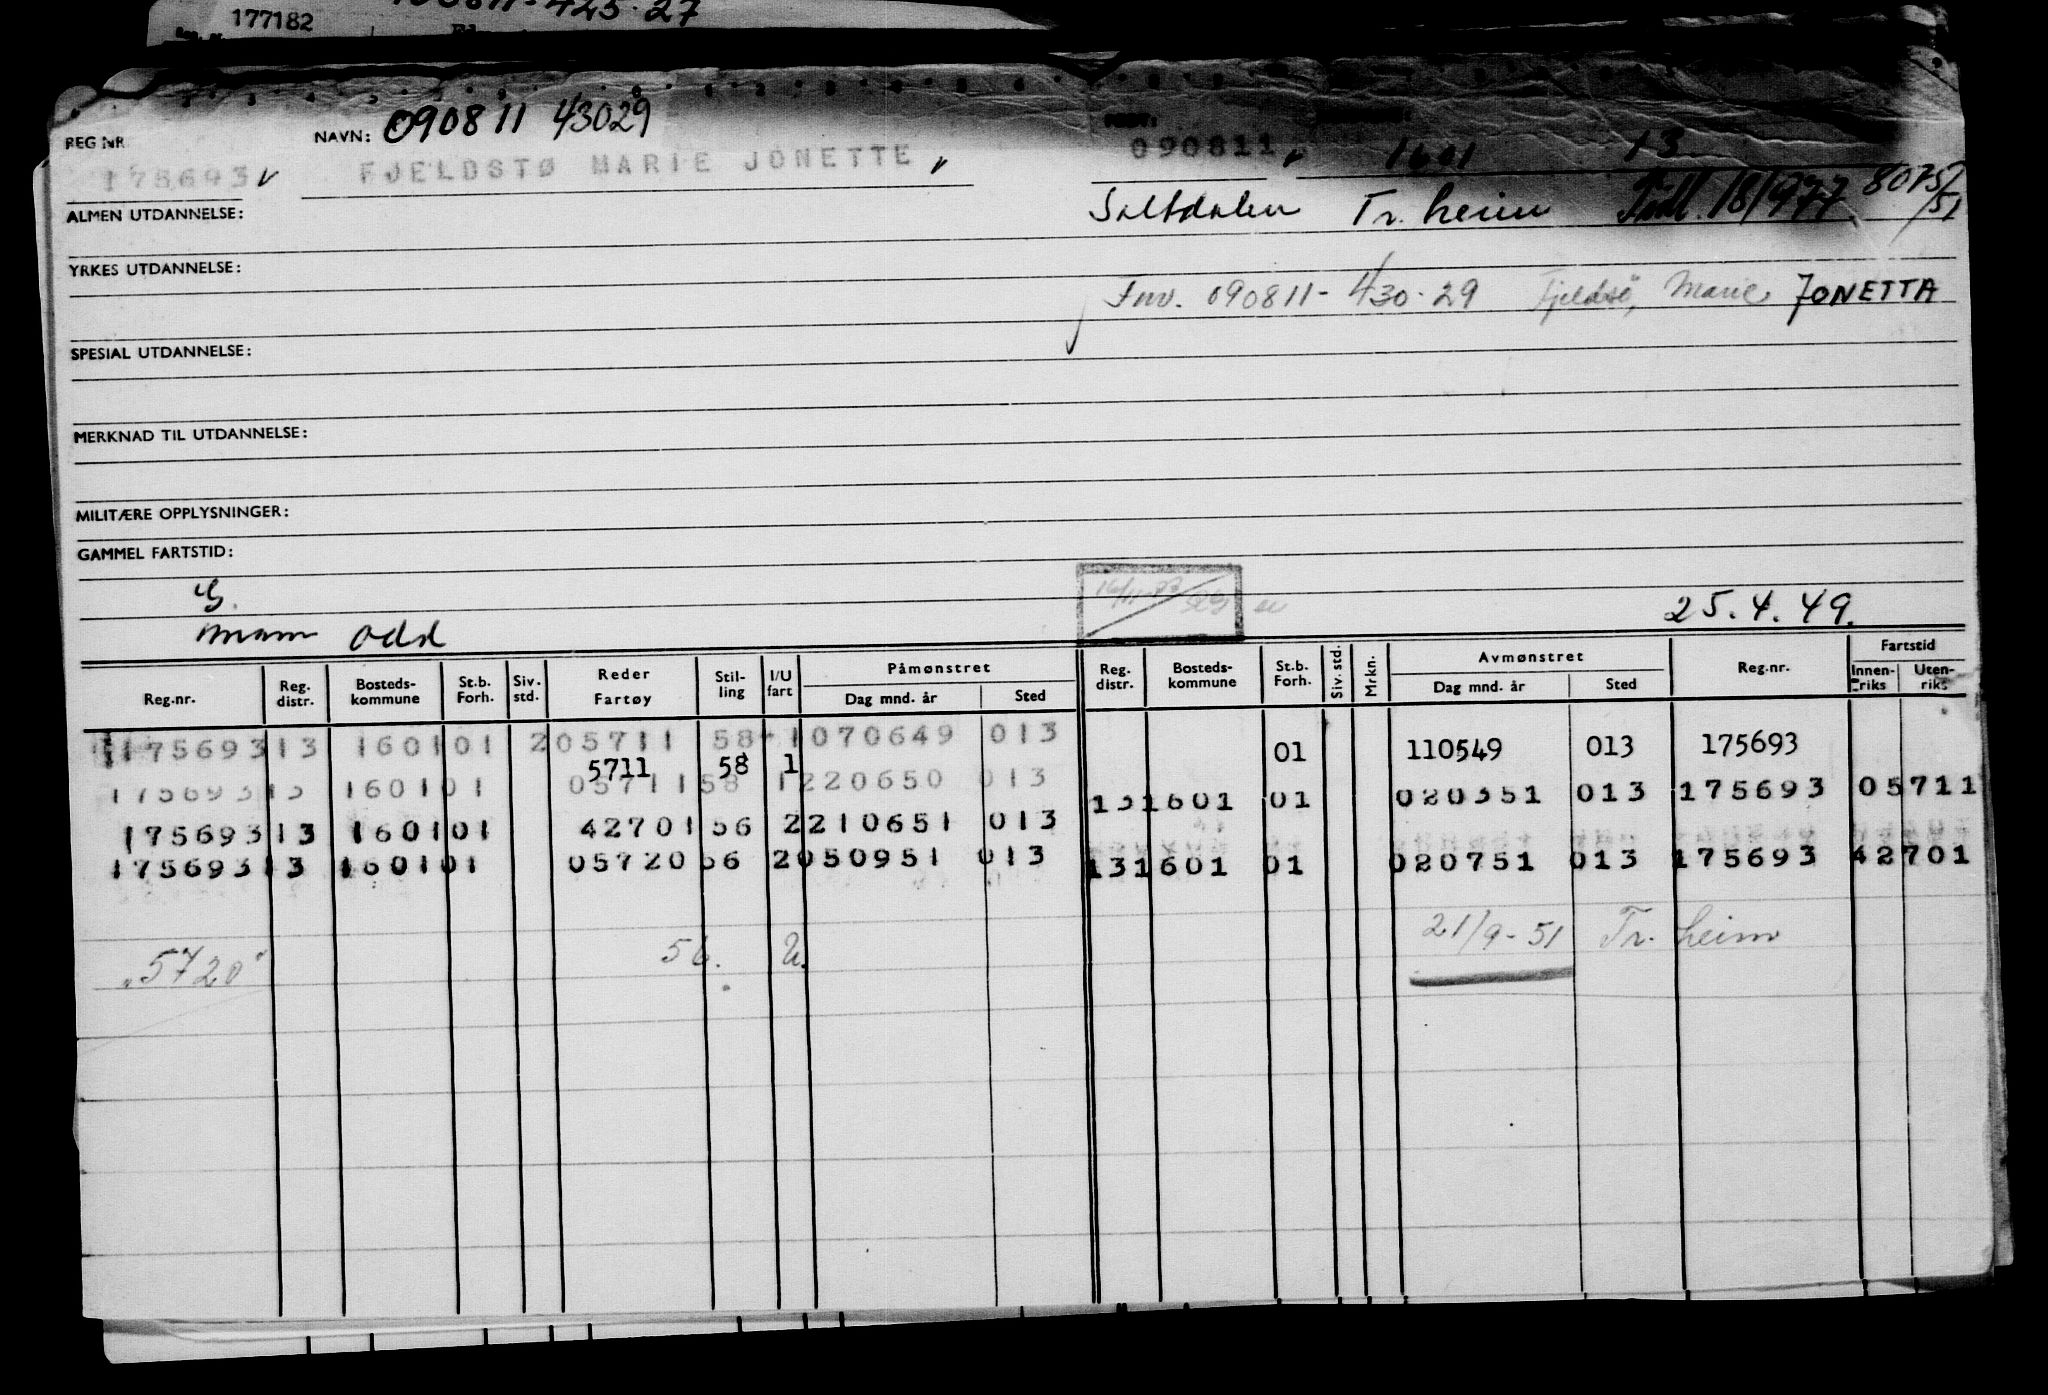 177182
REG NR
NAVN: 090811 43029
175693 FJELDSTØ MARIE JONETTE 090811 1601 13
ALMEN UTDANNELSE: Saltdalen Tr. heim Født. 18/977 8075/51
YRKES UTDANNELSE:
Fnr. 090811-430.29 Marie JONETTA
SPESIAL UTDANNELSE:
MERKNAD TIL UTDANNELSE:
MILITÆRE OPPLYSNINGER:
GAMMEL FARTSTID:
G. 25.4.49.
mann Odd
Reg.nr. Reg. distr. Bosteds-kommune St.b. Forh. Siv. std. Reder Fartøy Stil-ling I/U fart Påmønstret Dag mnd. år Sted Reg. distr. Bosteds-kommune St.b. Forh. Siv. std. Mrkn. Avmønstret Dag mnd. år Sted Reg.nr. Fartstid Innen-riks Uten-riks
175693 13 1601 01 2 05711 58 1 070649 013
5711 58 1 01 110549 013 175693
175693 13 1601 01 05711 58 1 220650 013 13 1601 01 020351 013 175693 05711
175693 13 1601 01 42701 56 2 210651 013
175693 13 1601 01 05720 56 2 050951 013 13 1601 01 020751 013 175693 42701
"5720" 56. U. 21/9-51 Tr. heim